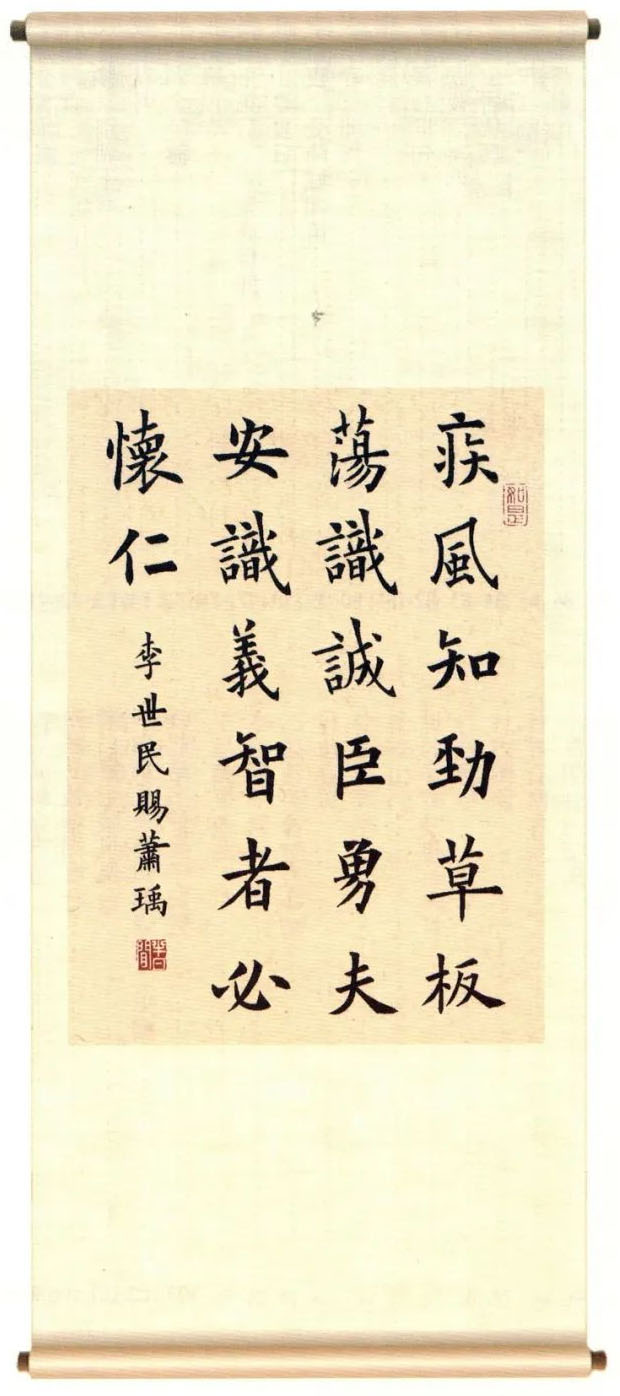 疾風知勁草板
蕩識誠臣勇夫
安識義智者必
懷仁
李世民賜蕭瑀